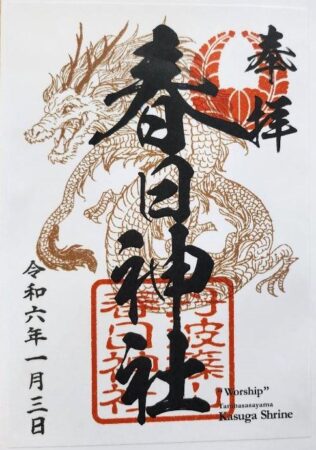 奉拝
春日神社
丹波篠山
春日神社
令和六年一月三日
"Worship"
Tambasasayama
Kasuga Shrine